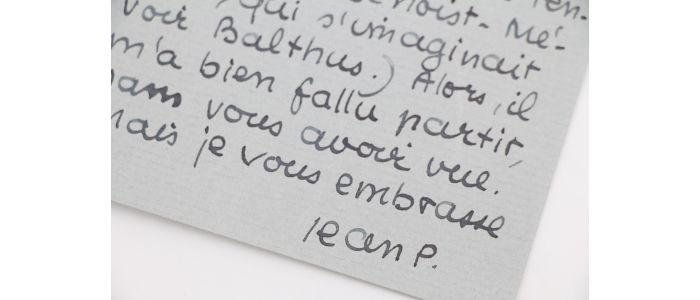 qui s'imaginait
voir Balthus.) Alors, il
m'a bien fallu partir,
sans vous avoir vue.
Mais je vous embrasse
Jean P.